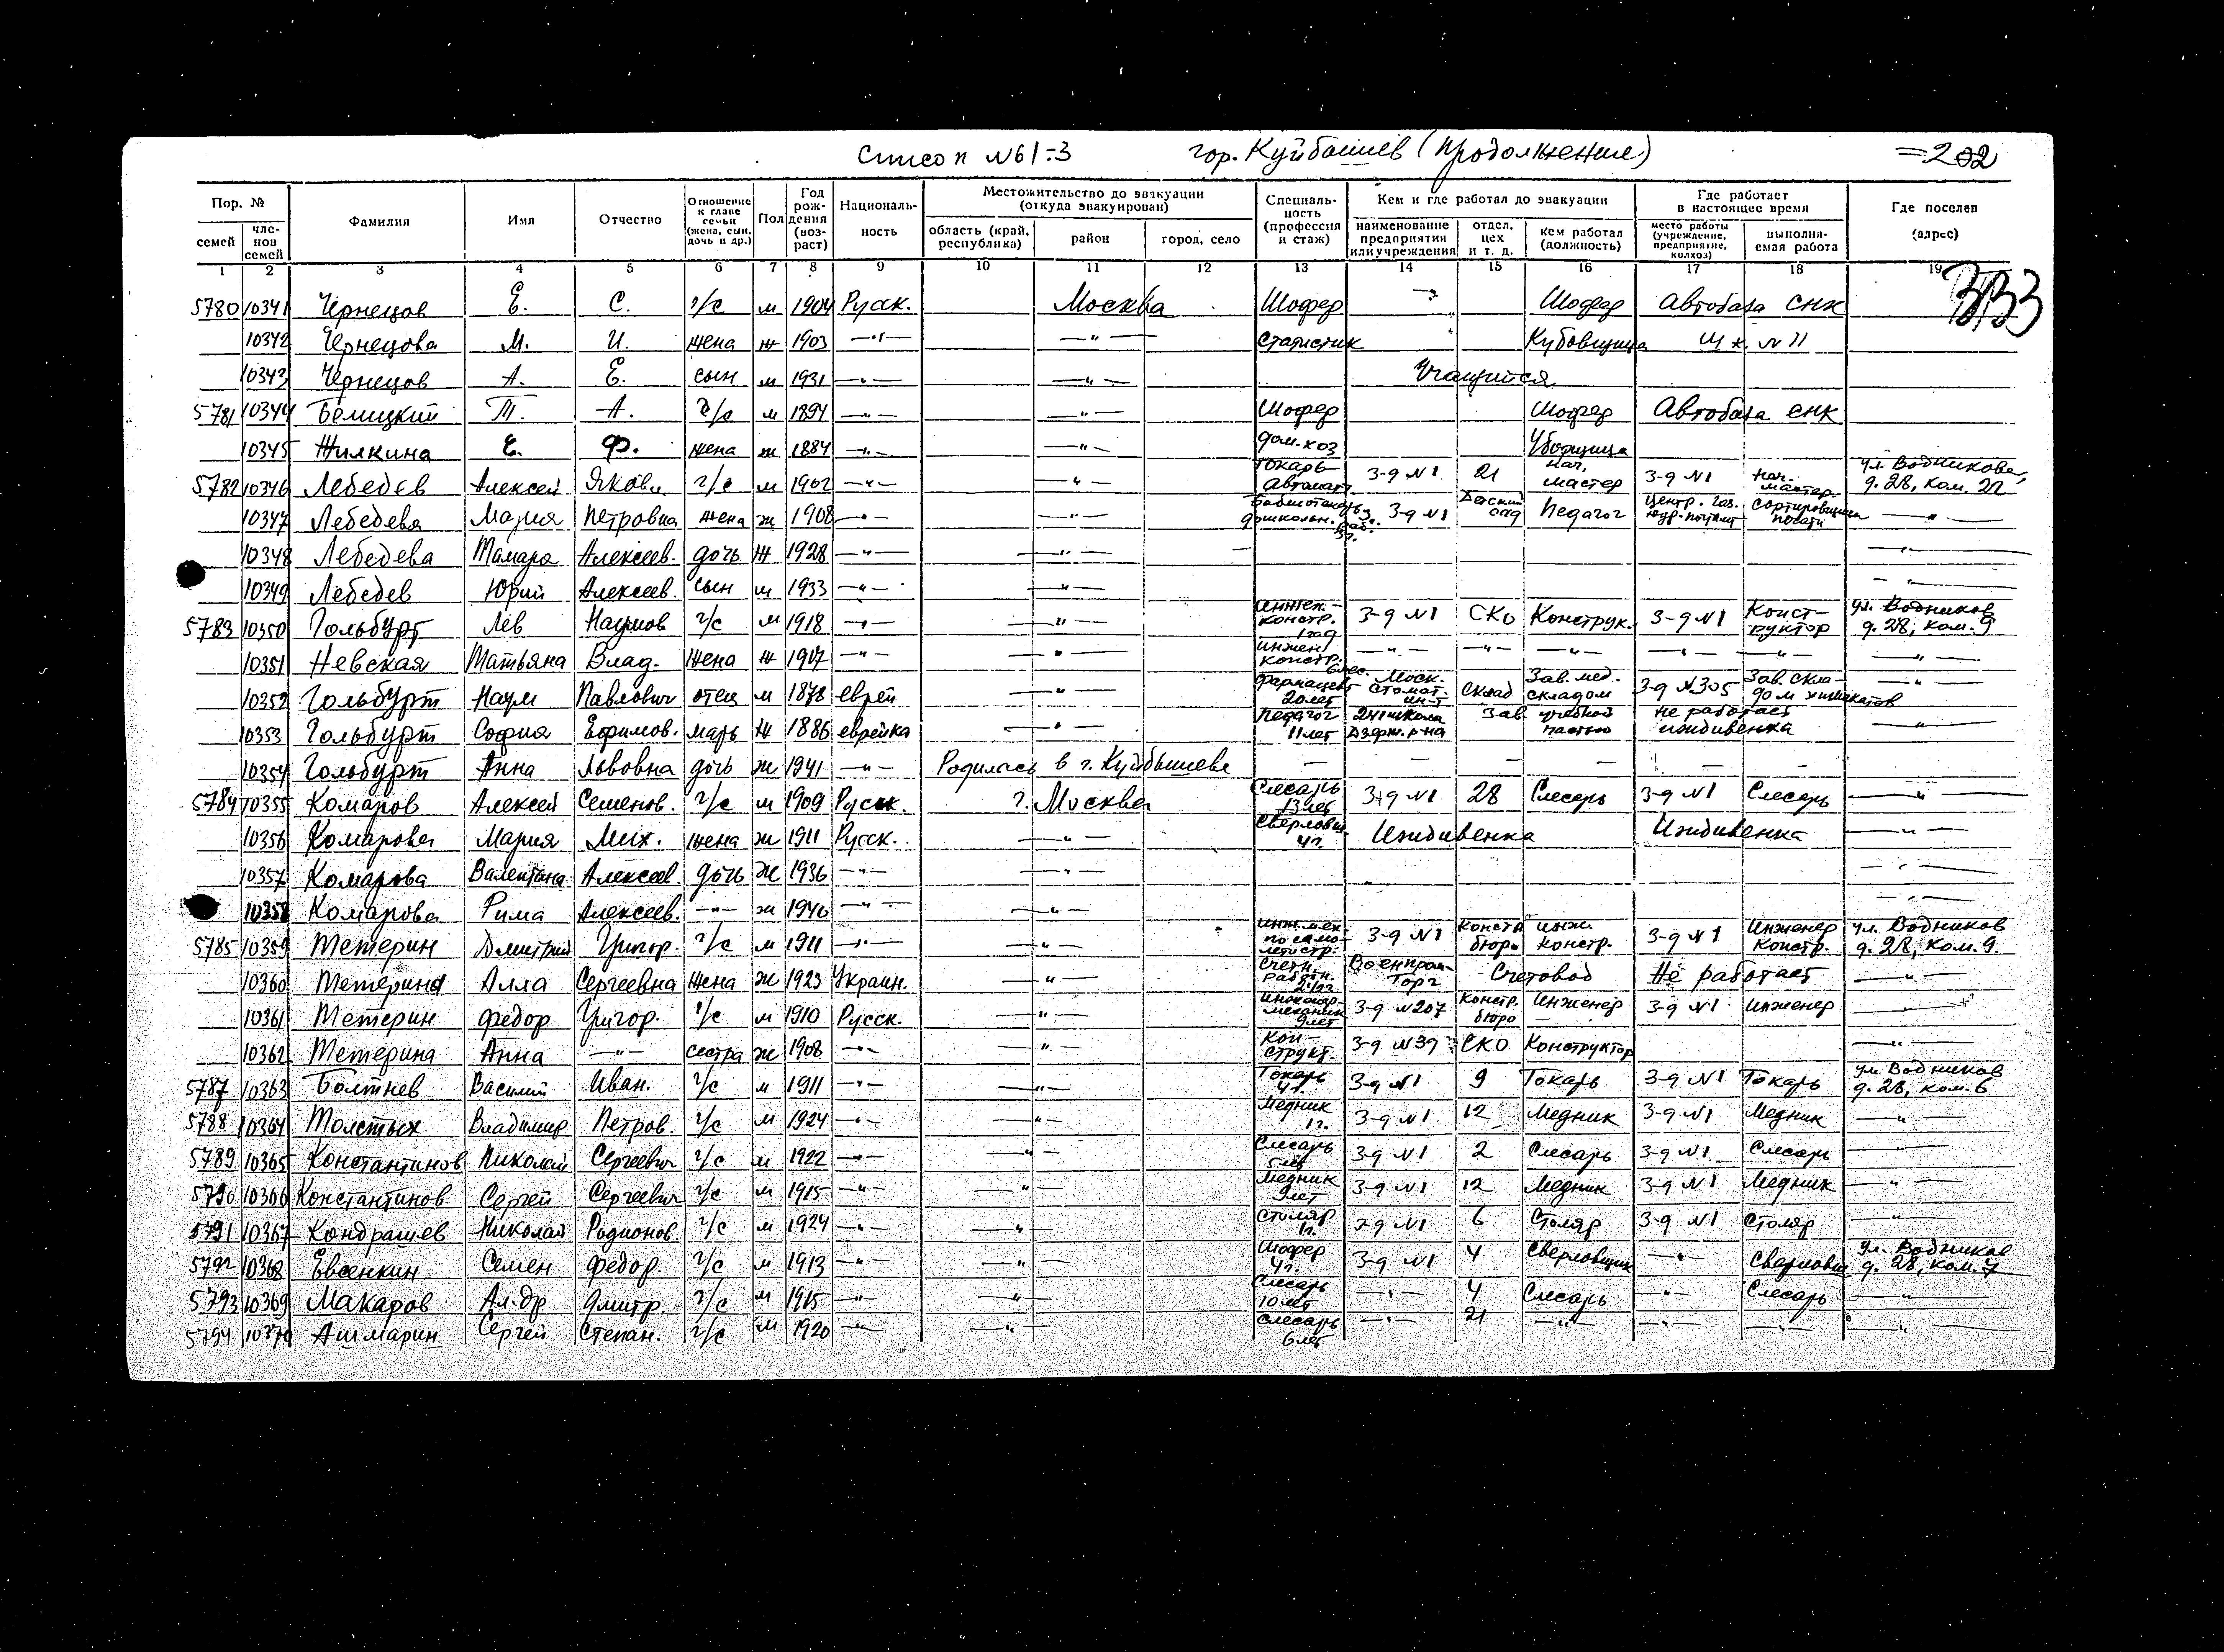 Список №61=3 гор. Куйбышев (продолжение) =202
Пор. № Фамилия Имя Отчество Отношение к главе семьи (жена, сын, дочь и др.) Пол Год рождения (возраст) Националь-ность Местожительство до эвакуации (откуда эвакуирован) Специаль-ность (профессия и стаж) Кем и где работал до эвакуации Где работает в настоящее время Где поселен (адрес)
семей чле-нов семей область (край, республика) район город, село наименование предприятия или учреждения отдел, цех и т. д. кем работал (должность) место работы (учреждение, предприятие, колхоз) выполня-емая работа
1 2 3 4 5 6 7 8 9 10 11 12 13 14 15 16 17 18 19
333
5780 10341 Чернецов Е. С. г/с м 1904 Русск. Москва Шофер —"— Шофер Автобаза СНК
10342 Чернецова М. И. жена ж 1903 —"— —"— Статистик Кубовщица № 11
10343 Чернецов А. Е. сын м 1931 —"— —"— Учащийся
5781 10344 Белицкий Т. А. г/с м 1894 —"— —"— Шофер Шофер Автобаза СНК
10345 Жилкина Е. Ф. жена ж 1884 —"— —"— дом.хоз Уборщица
5782 10346 Лебедев Алексей Яковл. г/с м 1902 —"— —"— Токарь автомат. 3-д №1 21 нач. мастер 3-д №1 нач. мастер. ул. Водникове, д. 28, ком. 22
10347 Лебедева Мария Петровна жена ж 1908 —"— —"— дошкольн. 3-д №1 Детский сад Педагог Центр. газ. сортировщица —"—
10348 Лебедева Тамара Алексеев. дочь ж 1928 —"— —"— —"—
10349 Лебедев Юрий Алексеев. сын м 1933 —"— —"— —"—
5783 10350 Гольбурт Лев Наумов г/с м 1918 —"— —"— инжен.-констр. 1 год 3-д №1 СКО Конструк. 3-д №1 Конст-руктор ул. Водников д. 28, ком. 9
10351 Невская Татьяна Влад. жена ж 1917 —"— —"— инжен констр. 6 мес. —"— —"— —"— —"— —"— —"—
10352 Гольбурт Наум Павлович отец м 1878 еврей —"— фармацевт 20 лет Моск. стомат. ин-т Склад Зав. мед. складом 3-д №305 Зав. скла-дом химикатов —"—
10353 Гольбурт София Ефимов. мать ж 1886 еврейка —"— Педагог 11 лет 241 школа Дзерж. р-на Зав. учебной частью не работает иждивенка —"—
10354 Гольбурт Анна Львовна дочь ж 1941 —"— Родилась в г. Куйбышеве — — — — —
5784 10355 Комаров Алексей Семенов. г/с м 1909 Русск. г. Москва Слесарь 13 лет 3-д №1 28 Слесарь 3-д №1 Слесарь —"—
10356 Комарова Мария Мих. жена ж 1911 Русск. —"— Сверловщ. 4 г. Иждивенка Иждивенка —"—
10357 Комарова Валентина Алексеев. дочь ж 1936 —"— —"— —"—
10358 Комарова Рима Алексеев. —"— ж 1940 —"— —"— —"—
5785 10359 Тетерин Дмитрий Григор. г/с м 1911 —"— —"— инж.мех. по само-летостр. 3-д №1 Констр бюро инж. констр. 3-д №1 Инженер констр. ул. Водников д. 28, ком. 9.
10360 Тетерина Алла Сергеевна жена ж 1923 Украин. —"— Счетн. работн. Военпром-торг Счетовод Не работает —"—
10361 Тетерин Федор Григор. г/с м 1910 Русск. —"— инженер-механик 9 лет 3-д №207 Констр. бюро Инженер 3-д №1 Инженер —"—
10362 Тетерина Анна —"— сестра ж 1908 —"— —"— Кон-структ. 3-д №39 СКО Конструктор —"—
5787 10363 Болтнев Василий Иван. г/с м 1911 —"— —"— Токарь 4 г. 3-д №1 9 Токарь 3-д №1 Токарь ул. Водников д. 28, ком. 6
5788 10364 Толстых Владимир Петров. г/с м 1924 —"— —"— Медник 1 г. 3-д №1 12 Медник 3-д №1 Медник —"—
5789 10365 Константинов Николай Сергеевич г/с м 1922 —"— —"— Слесарь 5 лет 3-д №1 2 Слесарь 3-д №1 Слесарь —"—
5790 10366 Константинов Сергей Сергеевич г/с м 1915 —"— —"— Медник 9 лет 3-д №1 12 Медник 3-д №1 Медник —"—
5791 10367 Кондрашев Николай Родионов. г/с м 1924 —"— —"— Столяр 1 г. 3-д №1 6 Столяр 3-д №1 Столяр —"—
5792 10368 Евсенкин Семен Федор. г/с м 1913 —"— —"— Шофер 4 г. 3-д №1 4 Сверловщик —"— Сверловщ ул. Водников д. 28, ком. 7
5793 10369 Макаров Ал-др Дмитр. г/с м 1915 —"— —"— Слесарь 10 лет —"— 4 Слесарь —"— Слесарь —"—
5794 10370 Ашмарин Сергей Степан. г/с м 1920 —"— —"— Слесарь 6 лет —"— 21 —"— —"— —"— —"—